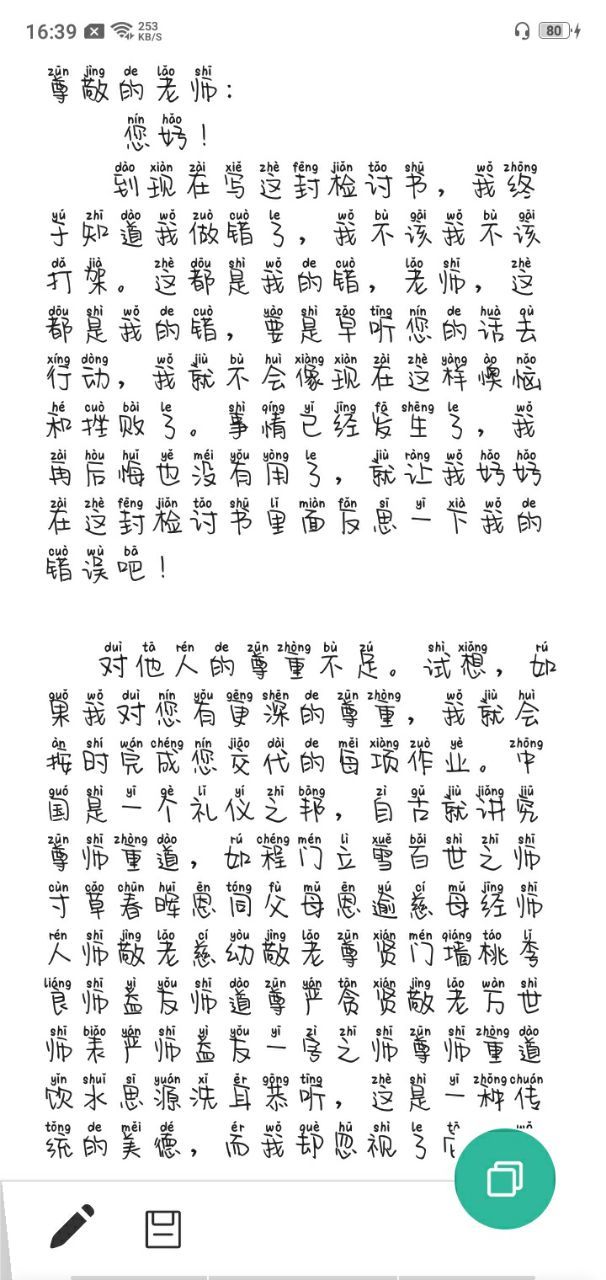 16:39 253 KB/S 80
zūn jìng de lǎo shī
尊敬的老师:
nín hǎo
您好!
dào xiàn zài xiě zhè fēng jiǎn tǎo shū wǒ zhōng
到现在写这封检讨书,我终
yú zhī dào wǒ zuò cuò le wǒ bù gāi wǒ bù gāi
于知道我做错了,我不该我不该
dǎ jià zhè dōu shì wǒ de cuò lǎo shī zhè
打架。这都是我的错,老师,这
dōu shì wǒ de cuò yào shì zǎo tīng nín de huà qù
都是我的错,要是早听您的话去
xíng dòng wǒ jiù bù huì xiàng xiàn zài zhè yàng ào nǎo
行动,我就不会像现在这样懊恼
hé cuò bài le shì qíng yǐ jīng fā shēng le wǒ
和挫败了。事情已经发生了,我
zài hòu huǐ yě méi yǒu yòng le jiù ràng wǒ hǎo hǎo
再后悔也没有用了,就让我好好
zài zhè fēng jiǎn tǎo shū lǐ miàn fǎn sī yī xià wǒ de
在这封检讨书里面反思一下我的
cuò wù bā
错误吧!
duì tā rén de zūn zhòng bù zú shì xiǎng rú
对他人的尊重不足。试想,如
guǒ wǒ duì nín yǒu gèng shēn de zūn zhòng wǒ jiù huì
果我对您有更深的尊重,我就会
àn shí wán chéng nín jiāo dài de měi xiàng zuò yè zhōng
按时完成您交代的每项作业。中
guó shì yī gè lǐ yí zhī bāng zì gǔ jiù jiǎng jiū
国是一个礼仪之邦,自古就讲究
zūn shī zhòng dào rú chéng mén lì xuě bǎi shì zhī shī
尊师重道,如程门立雪百世之师
cùn cǎo chūn huī ēn tóng fù mǔ ēn yú cí mǔ jīng shī
寸草春晖恩同父母恩逾慈母经师
rén shī jìng lǎo cí yòu jìng lǎo zūn xián mén qiáng táo lǐ
人师敬老慈幼敬老尊贤门墙桃李
liáng shī yì yǒu shī dào zūn yán tān xián jìng lǎo wàn shì
良师益友师道尊严贪贤敬老万世
shī biǎo yán shī yì yǒu yī zì zhī shī zūn shī zhòng dào
师表严师益友一字之师尊师重道
yǐn shuǐ sī yuán xǐ ěr gōng tīng zhè shì yī zhǒng chuán
饮水思源洗耳恭听,这是一种传
tǒng de měi dé ér wǒ què hū shì le
统的美德,而我却忽视了